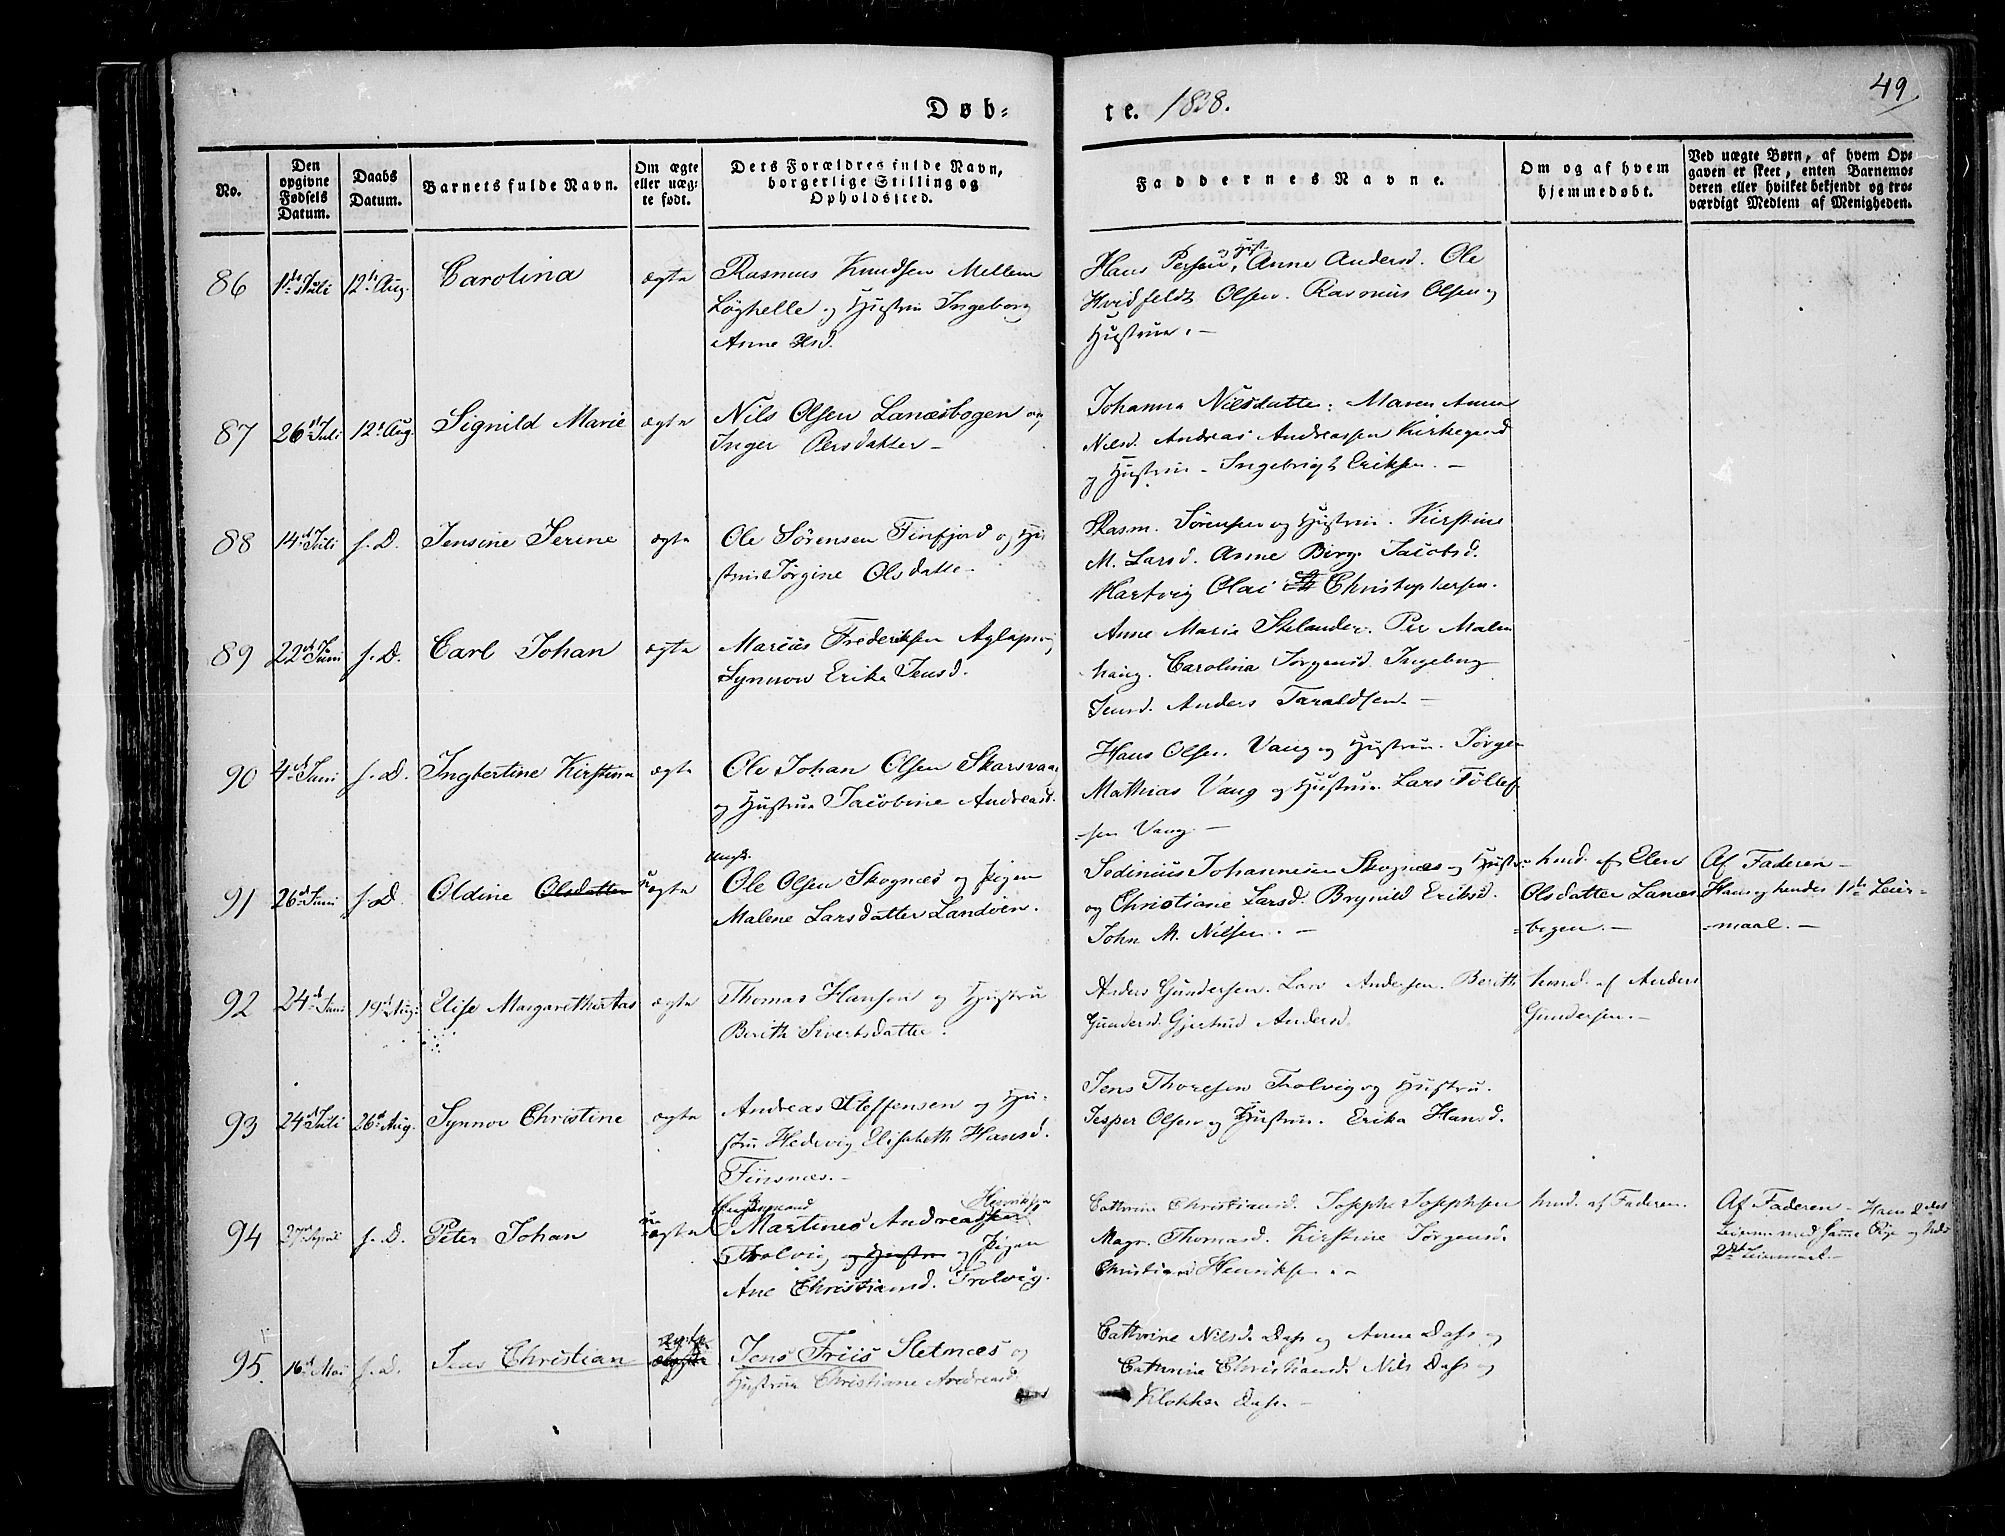 49
Døb-
te. 1838.
No.
Den opgivne Fødsels Datum.
Daabs Datum.
Barnets fulde Navn.
Om ægte eller uæg-
te født.
Dets Forældres fulde Navn,
borgerlige Stilling og
Opholdssted.
Faddernes Navne.
Om og af hvem
hjemmedøbt.
Ved uægte Børn, af hvem Op-
gaven er skeet, enten Barnemo-
deren eller hvilket bekjendt og tro-
værdigt Medlem af Menigheden.
86 1ste Juli 12te Aug. Carolina ægte
Rasmus Knudsen Mellem
Løghelle og Hustru Ingeborg
Anne Olsd.
Hans Persen og Hust. Anne Andersd. Ole
Hvidfeldt Olsen. Rasmus Olsen og
Hustrue. –
87 26d Juli 12t Aug. Signild Marie ægte
Nils Olsen Lanæsbogen og
Inger Persdatter –
Johanna Nilsdatte. Maren Anna
Nilsd. Andreas Andreassen Kirkegaard
og Hustru – Ingebrigt Eriksen. –
88 14d Juli s. D. Jensine Serine ægte
Ole Sørensen Finfjord og Hu-
stru Jørgine Olsdatte.
Rasm. Sørensen og Hustru. Kirstine
M. Larsd. Anne Birg. Jacobsd.
Hartvig Olai Christophersen.
89 22d Juni s. D. Carl Johan ægte
Marcus Frederiksen Aglapsvig
Synnov Erika Jensd.
Anne Maria Stelander. Per Malm
haug. Carolina Jørgensd. Ingeborg
Jensd. Anders Taraldsen. –
90 4d Juni s. D. Ingbertine Kirstina ægte
Ole Johan Olsen Skarsvaag
og Hustrue Jacobine Andreasd.
Hans Olsen Vang og Hustrue. Jørgen
Mathias Vang og Hustrue. Lars Tollef-
sen Vang. –
91 26d Juni s. D. Oldine Olsdatter uægte
Ungk.
Ole Olsen Skognæs og Pigen
Malene Larsdatter Landøen.
Sedinius Johannesen Skognæs og Hustru
og Christiane Larsd. Brynild Eriksd.
John M. Nilsen. –
hmd. af Elen
Olsdatter Lanæs
bogen. –
Af Faderen –
Hans og hendes 1ste Leier-
maal. –
92 24d Juni 19d Aug. Elise Margaretha ægte
Thomas Hansen og Hustru
Berith Sivertsdatter.
Anders Gundersen. Lars Andersen. Berith
Gundersd. Gjertrud Andersd.
hmd. af Anders
Gundersen. –
93 24d Juli 26d Aug. Synnov Christine ægte
Andreas Steffensen og Hu-
stru Hedevig Elisabeth Hansd.
Finsnæs. –
Jens Thoresen Trolvig og Hustru.
Jesper Olsen og Hustru. Erika Hansd.
94 27d April s. D. Peter Johan uægte
Henriksen
Martines Andreassen
Trolvig og Hustru og Pigen
Ane Christiansd. Trolvig.
Cathrine Christiansd. Joseph Josephsen
Magr. Thomasd. Kirstine Jørgensd.
Christian Henriksen. –
hmd. af Faderen.
Af Faderen –
Leierm. med samme Pige og hendes
2det Leiermaal. –
95. 16d Mai s. D. Jens Christian ægte
Jens Friis Sletnæs og
Hustrue Christiane Andreasd.
Cathrine Nilsd. Dass og Anne Dass og
Cathrine Christiansd. Nils Dass og
Klokker Dass. –